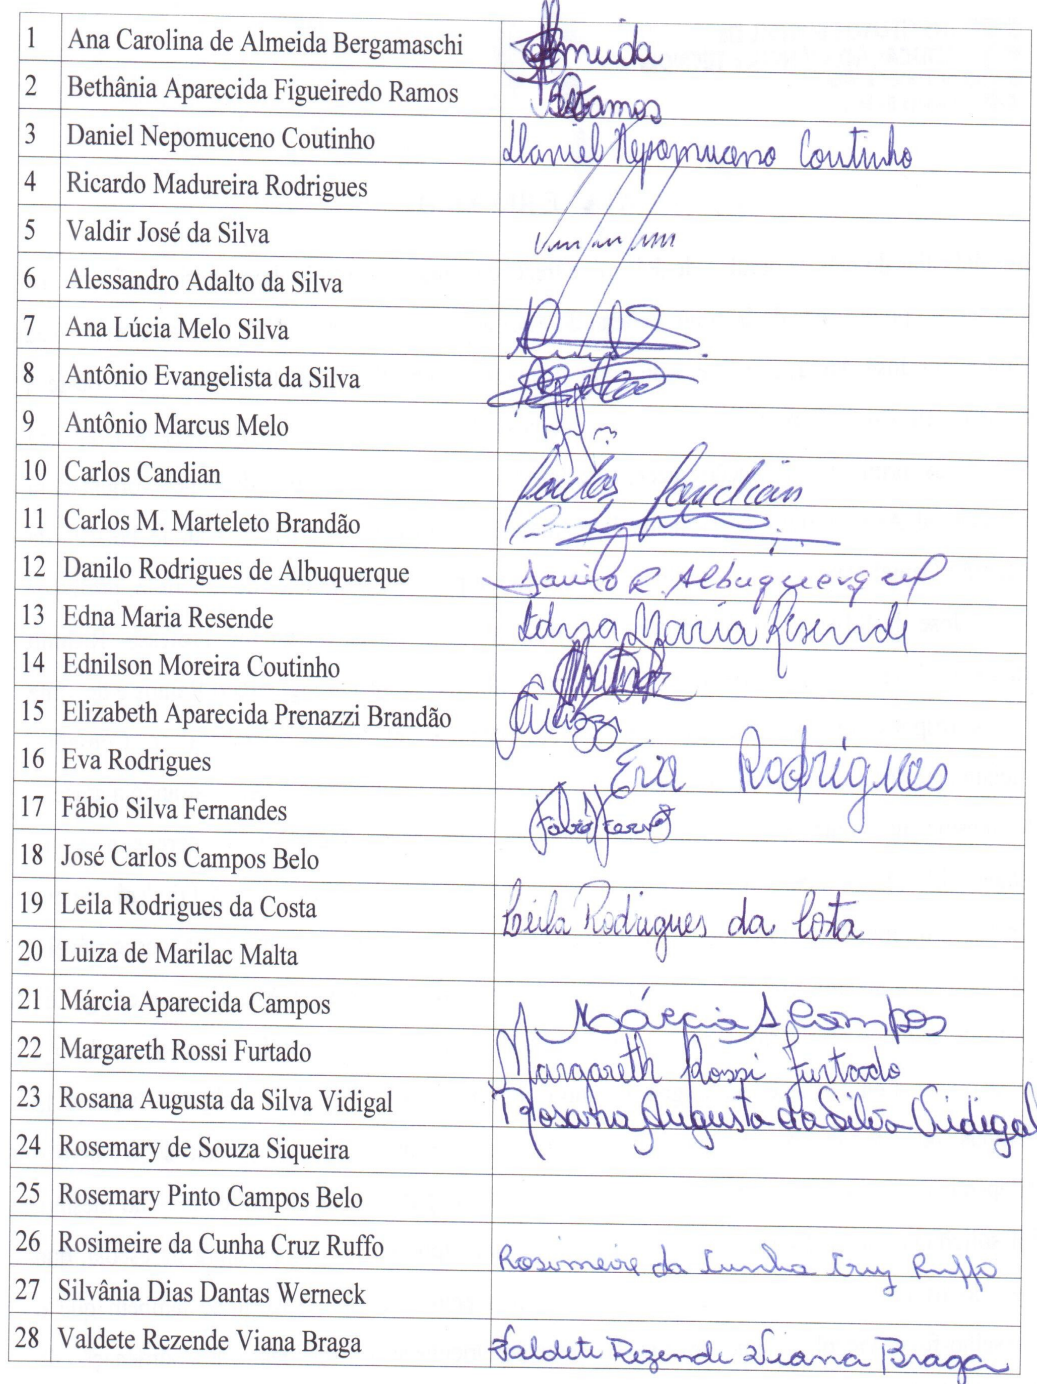 1 Ana Carolina de Almeida Bergamaschi Almeida
2 Bethânia Aparecida Figueiredo Ramos Ramos
3 Daniel Nepomuceno Coutinho Daniel Nepomuceno Coutinho
4 Ricardo Madureira Rodrigues
5 Valdir José da Silva
6 Alessandro Adalto da Silva
7 Ana Lúcia Melo Silva
8 Antônio Evangelista da Silva
9 Antônio Marcus Melo
10 Carlos Candian Carlos Candian
11 Carlos M. Marteleto Brandão
12 Danilo Rodrigues de Albuquerque Danilo R. Albuquerque
13 Edna Maria Resende Edna Maria Resende
14 Ednilson Moreira Coutinho
15 Elizabeth Aparecida Prenazzi Brandão
16 Eva Rodrigues Eva Rodrigues
17 Fábio Silva Fernandes Fabio
18 José Carlos Campos Belo
19 Leila Rodrigues da Costa Leila Rodrigues da Costa
20 Luiza de Marilac Malta
21 Márcia Aparecida Campos Márcia A Campos
22 Margareth Rossi Furtado Margareth Rossi Furtado
23 Rosana Augusta da Silva Vidigal Rosana Augusta da Silva Vidigal
24 Rosemary de Souza Siqueira
25 Rosemary Pinto Campos Belo
26 Rosimeire da Cunha Cruz Ruffo Rosimeire da Cunha Cruz Ruffo
27 Silvânia Dias Dantas Werneck
28 Valdete Rezende Viana Braga Valdete Rezende Viana Braga